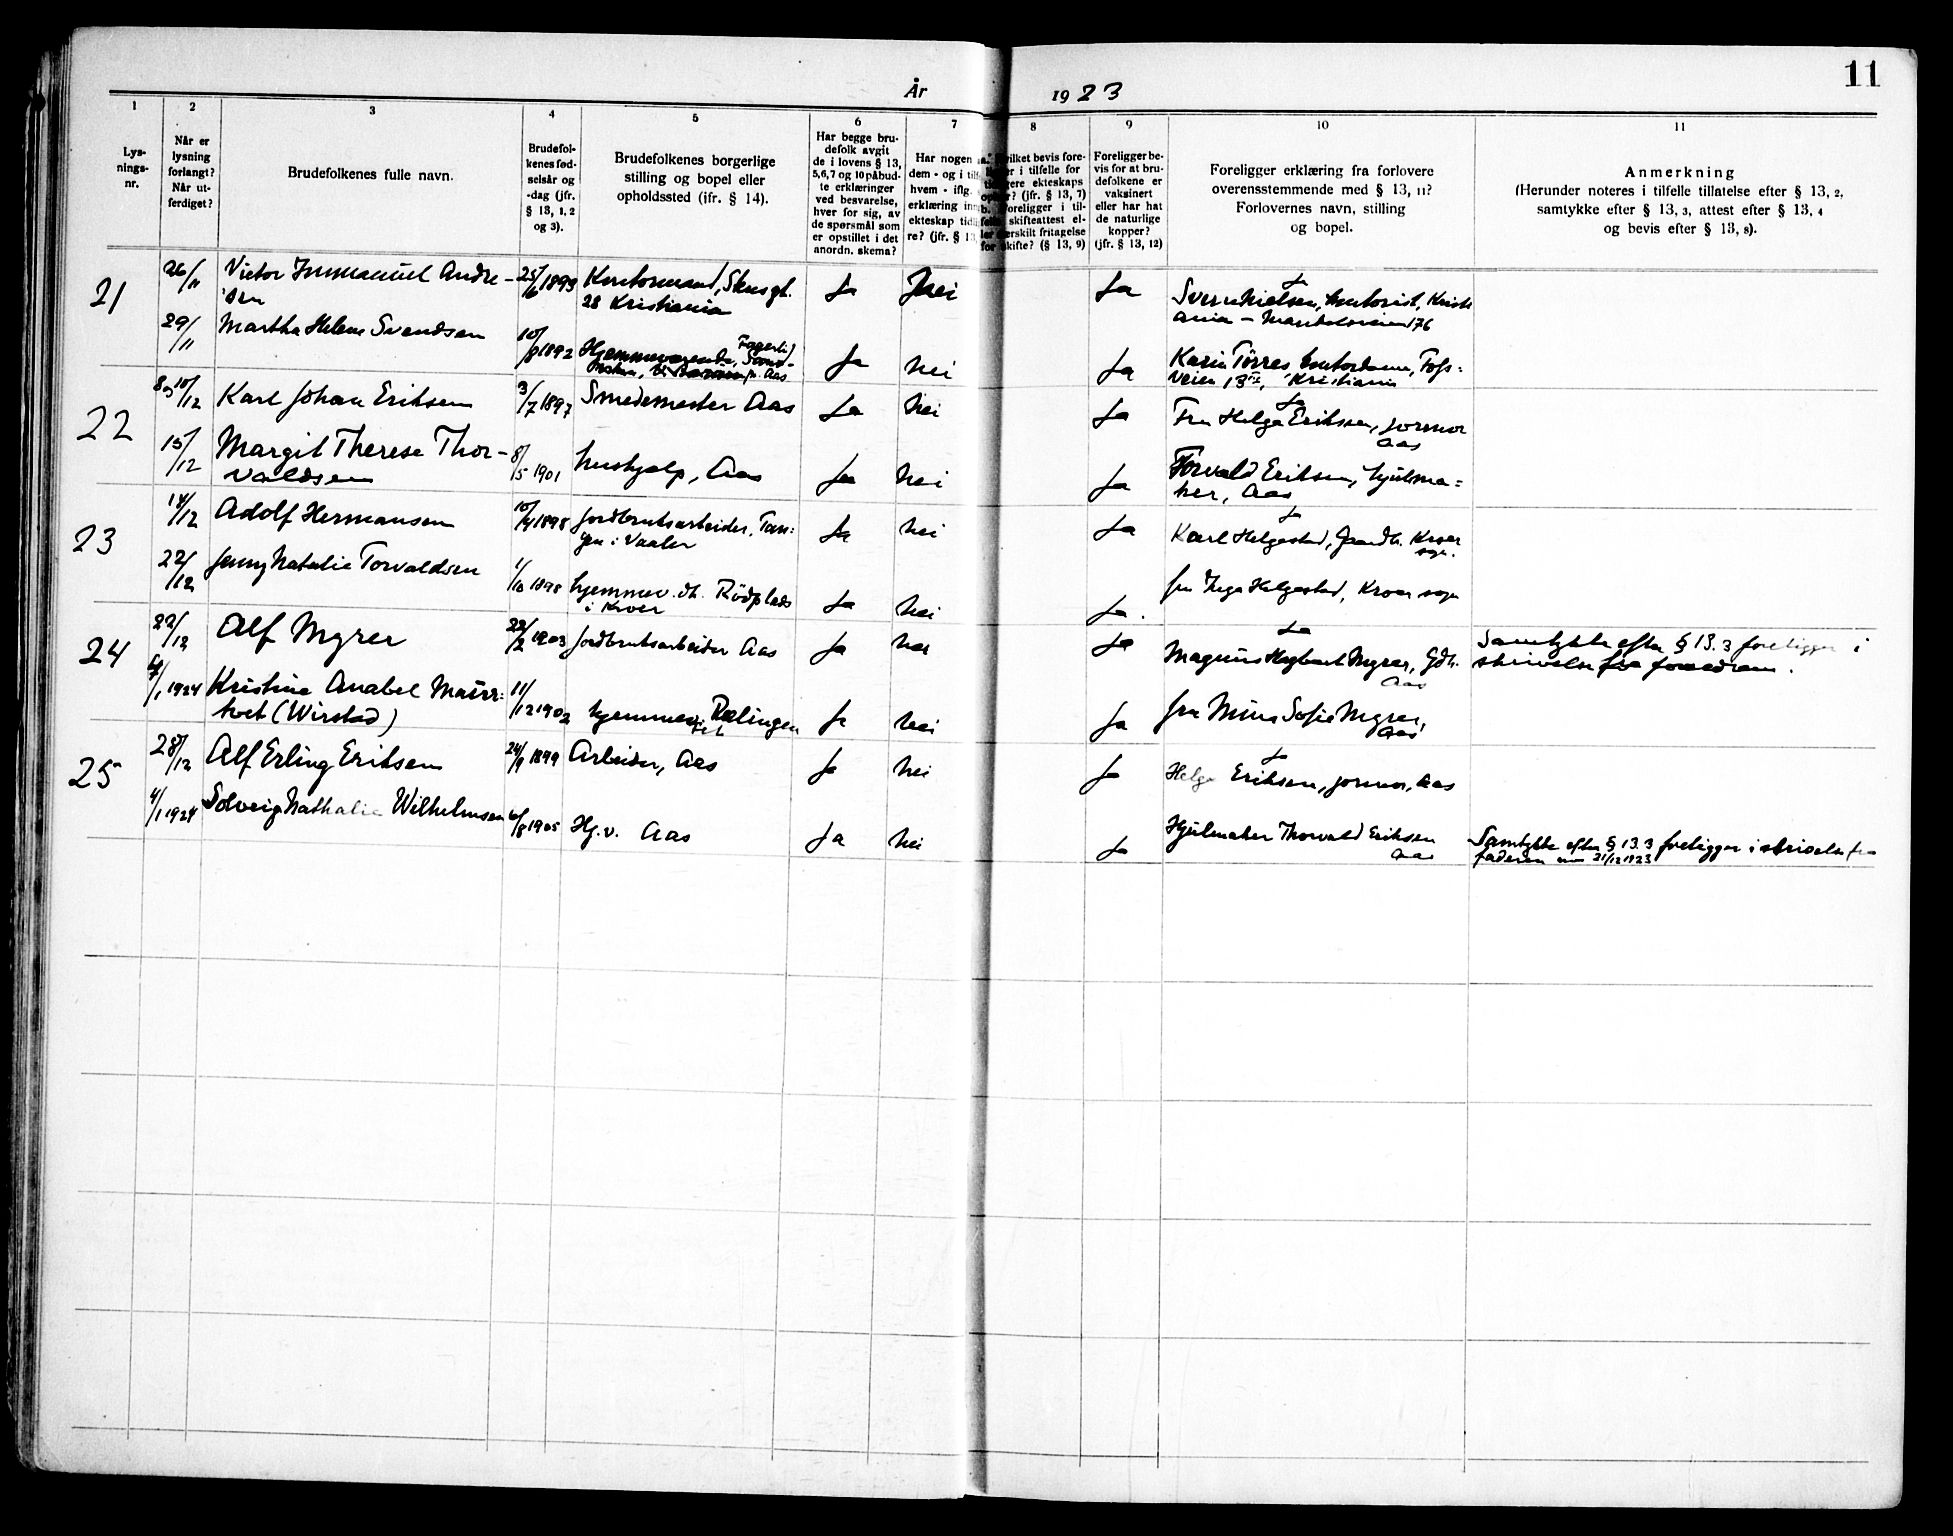 11
År 1923
1 2 3 4 5 6 7 8 9 10 11
Lys-
nings-
nr.
Når er
lysning
forlangt?
Når ut-
ferdiget?
Brudefolkenes fulle navn.
Brudefol-
kenes fød-
selsår og
-dag (jfr.
§ 13, 1, 2
og 3).
Brudefolkenes borgerlige
stilling og bopel eller
opholdssted (ifr. § 14).
Har begge bru-
defolk avgit
de i lovens § 13,
5,6,7 og 10 påbud-
te erklæringer
ved besvarelse,
hver for sig, av
de spørsmål som
er opstillet i det
anordn. skema?
Har nogen
dem - og i
hvem - iflg.
erklæring
ekteskap
re? (jfr. § 13
bevis fore-
i tilfelle for
ekteskaps
? (jfr. § 13, 7)
foreligger i til-
skifteattest el-
særskilt fritagelse
for skifte? (§ 13, 9)
Foreligger be-
vis for at bru-
defolkene er
vaksinert
eller har hat
de naturlige
kopper?
(jfr. § 13, 12)
Foreligger erklæring fra forlovere
overensstemmende med § 13, 11?
Forlovernes navn, stilling
og bopel.
Anmerkning
(Herunder noteres i tilfelle tillatelse efter § 13, 2,
samtykke efter § 13, 3, attest efter § 13, 4
og bevis efter § 13, 8).
21 26/11 Victor Immanuel Andre-
sen 25/6 1899 Kontormand, 
28 Kristiania Ja Nei Ja Ja
Nielsen, kontorist, Kristi
ania - 176
29/11 Martha Helene Svendsen 10/8 1892 Hjemmeværende, Fagerli,
Aas Ja nei Ja Karin Tørres kontordame,
veien 13, Kristiania
22 10/12 Karl Johan Eriksen 3/7 1897 Smedemester Aas Ja Nei Ja Ja
Fru Helga Eriksen, jormor
Aas
15/12 Margit Therese Thor-
valdsen 8/5 1901 hushjælp, Aas Ja nei Ja Torvald Eriksen, hjulma=
ker, Aas
23 14/12 Adolf Hermansen 10/4 1898 Jordbruksarbeider, Tan=
gen i Vaaler Ja nei Ja Ja
Karl Helgestad, Gaardb. Kroer
sogn.
22/12 Jenny Natalie Torvaldsen 1/10 1898 hjemmev. dtr. Rödplads
i Kroer Ja nei Ja. fru Inga Helgestad, Kroer sogn
24 22/12 Alf Myrer 22/2 1903 Jordbruksarbeider Aas Ja nei Ja Ja
Magnus Myrer, Gdb.
Aas
Samtykke efter § 13.3 foreligger i
skrivelse fra foreldrene.
4/1 1924 Kristine Anabel
(Wirstad) 11/12 1902 hjemmev. Rælingen Ja nei Ja fru Mina Sofie Myrer,
Aas
25 28/12 Alf Erling Eriksen 24/9 1899 Arbeider, Aas Ja Nei Ja Ja
Helga Eriksen, jormor, Aas
4/1 1924 Solveig Nathalie Wilhelmsen 6/8 1905 Hj.v. Aas Ja Nei Ja Hjulmaker Thorvald Eriksen
Aas
Samtykke efter § 13.3 foreligger i skrivelse fra
faderen 21/12 1923